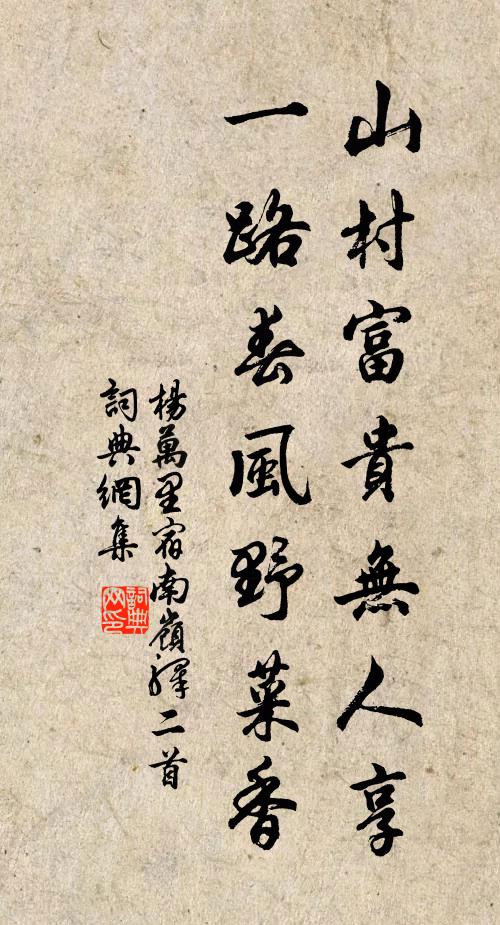 山村富貴無人享
一路春風野菜香
楊萬里宿南嶺驛二首
詞典網集
詞典
网印